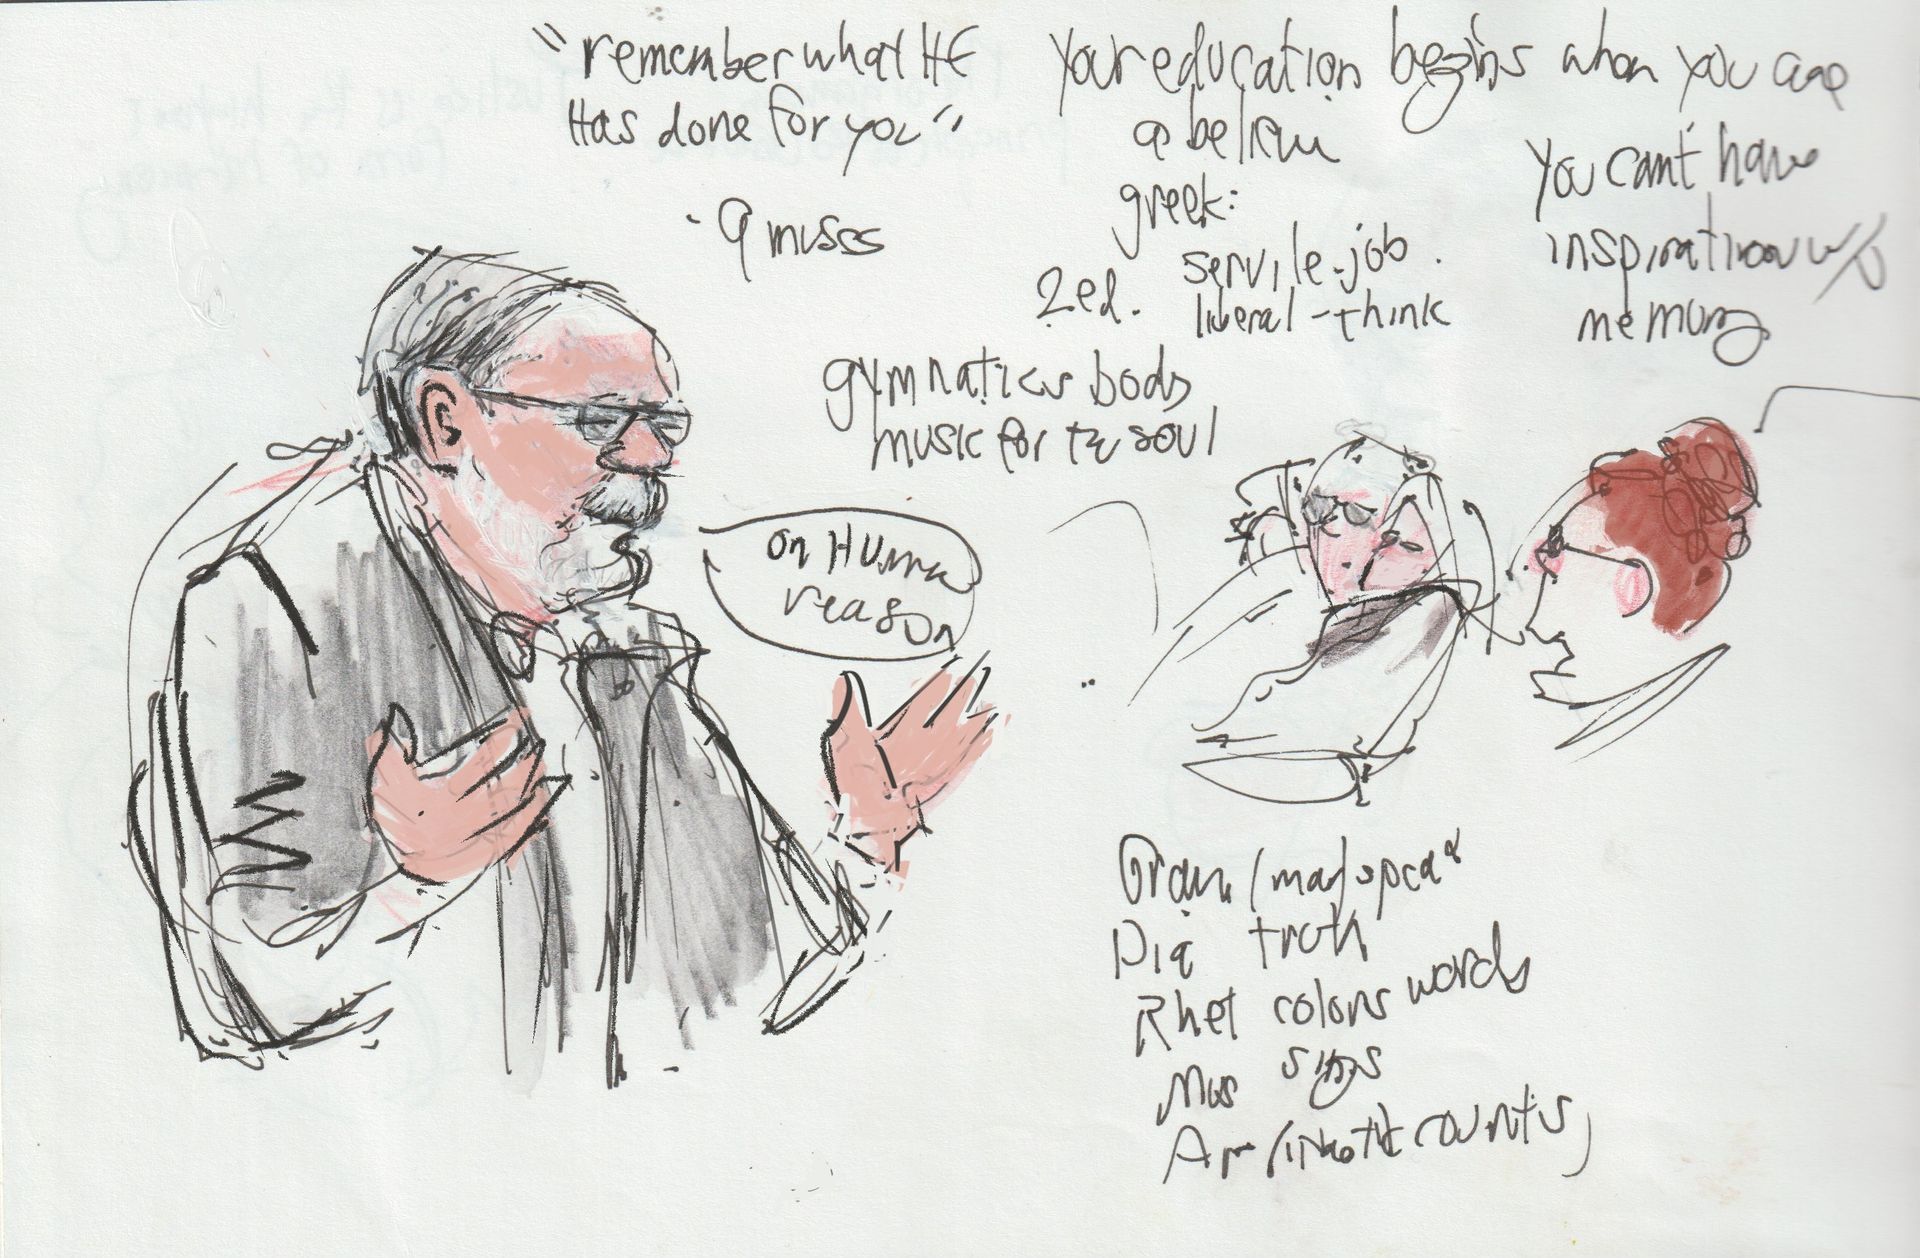 "remember what HE
Has done for you"
- 9 muses
Your education begins when you are
a
greek:
2 ed. servile - job.
liberal - think
You can't have
inspiration w/o
memory
gymnatics body
music for the soul
on Human
reason
Gram
truth
Rhet colors words
Mus sings
counts